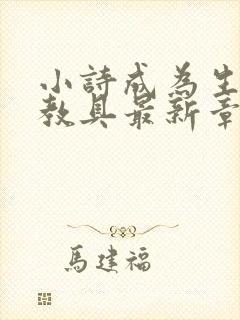 小詩成為生
教具最新章
馬建福